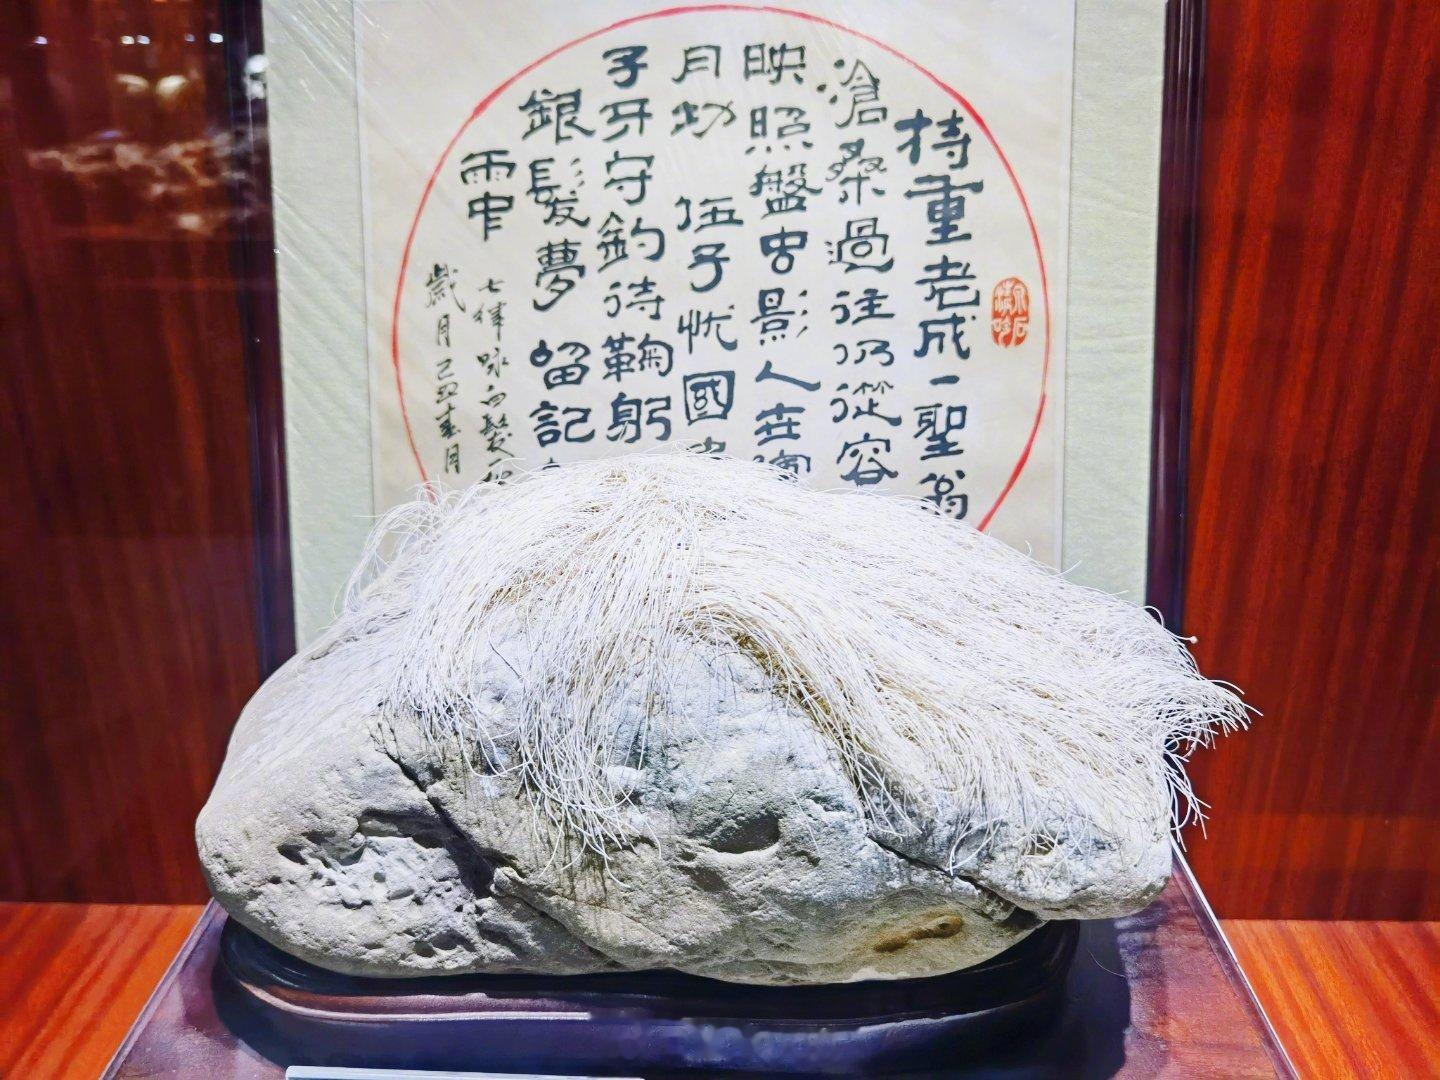 持重老成一聖翁
滄桑過往仍從容
映照盤中影人在
月幼 伍子忧國
子牙守釣待鞠躬
銀髮夢留記
雨中
七律咏白髮
歲月己丑